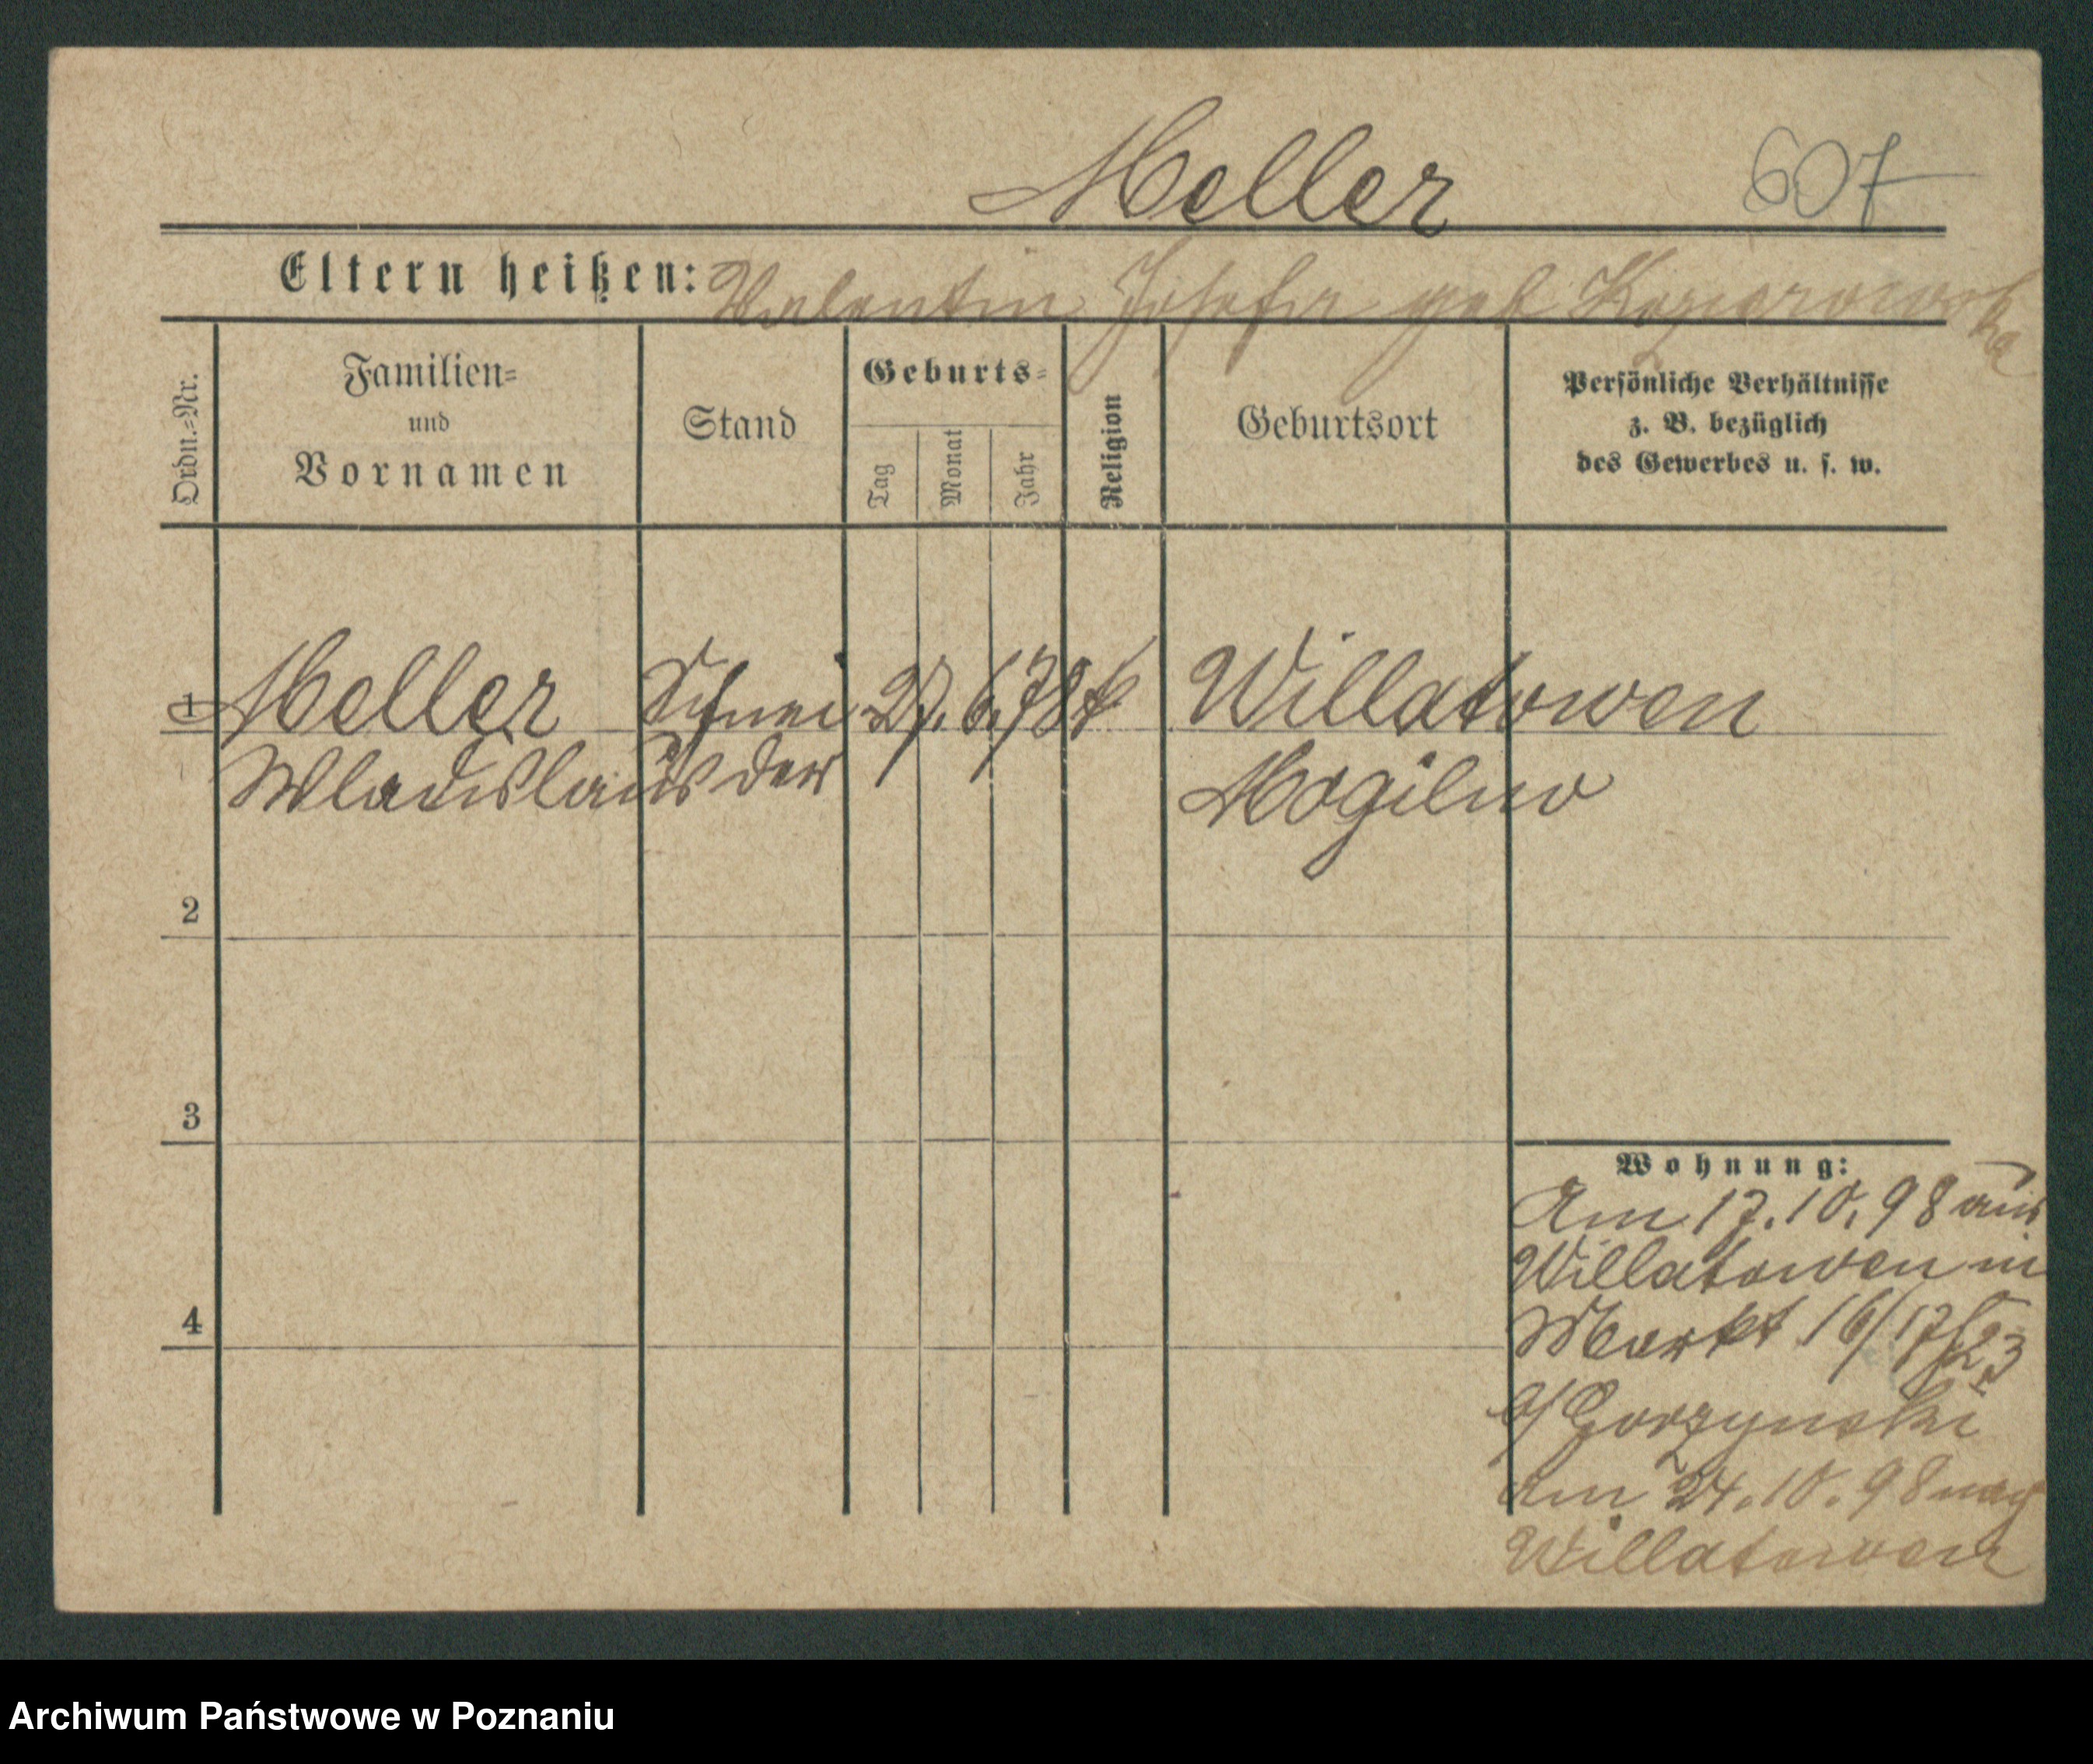 Meller 607
Eltern heißen: Valentin Josefa geb Kozierowska
Ordn.=Nr.
Familien=
und
Vornamen
Stand
Geburts=
Tag
Monat
Jahr
Religion
Geburtsort
Persönliche Verhältnisse
z. B. bezüglich
des Gewerbes u. s. w.
1 Meller Schnei 27. 6. 78 k Willatowen
Wladislaus der Mogilno
2
3
4
Wohnung:
Am 17.10.98 aus
Willatowen in
Markt 16/17/23
b/Gorzynski
Am 24.10.98 nach
Willatowen
Archiwum Państwowe w Poznaniu